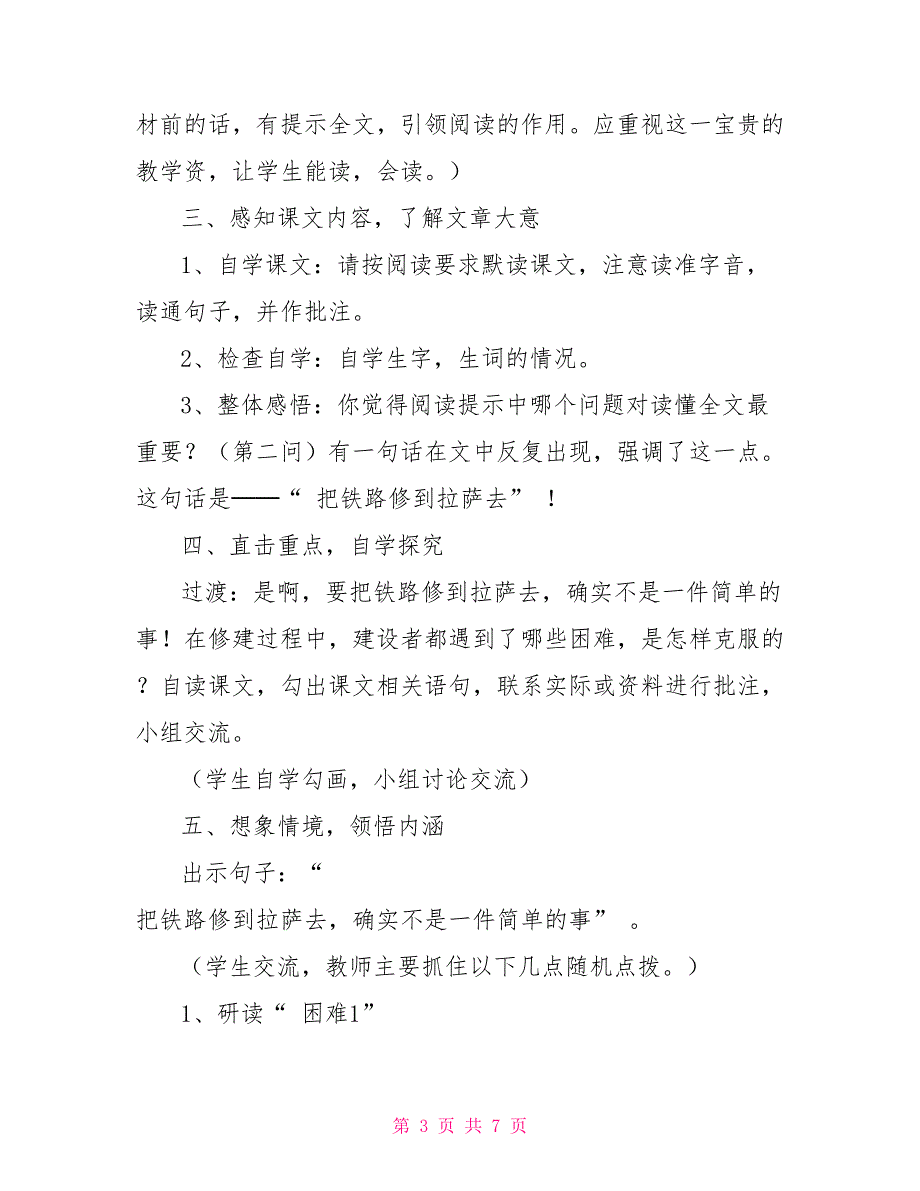 材前的话，有提示全文，引领阅读的作用。应重视这一宝贵的
教学资，让学生能读，会读。）
三、感知课文内容，了解文章大意
1、自学课文：请按阅读要求默读课文，注意读准字音，
读通句子，并作批注。
2、检查自学：自学生字，生词的情况。
3、整体感悟：你觉得阅读提示中哪个问题对读懂全文最
重要？（第二问）有一句话在文中反复出现，强调了这一点。
这句话是——“ 把铁路修到拉萨去” ！
四、直击重点，自学探究
过渡：是啊，要把铁路修到拉萨去，确实不是一件简单的
事！在修建过程中，建设者都遇到了哪些困难，是怎样克服的
？自读课文，勾出课文相关语句，联系实际或资料进行批注，
小组交流。
（学生自学勾画，小组讨论交流）
五、想象情境，领悟内涵
出示句子：“
把铁路修到拉萨去，确实不是一件简单的事” 。
（学生交流，教师主要抓住以下几点随机点拨。）
1、研读“ 困难1”
第 3 页 共 7 页